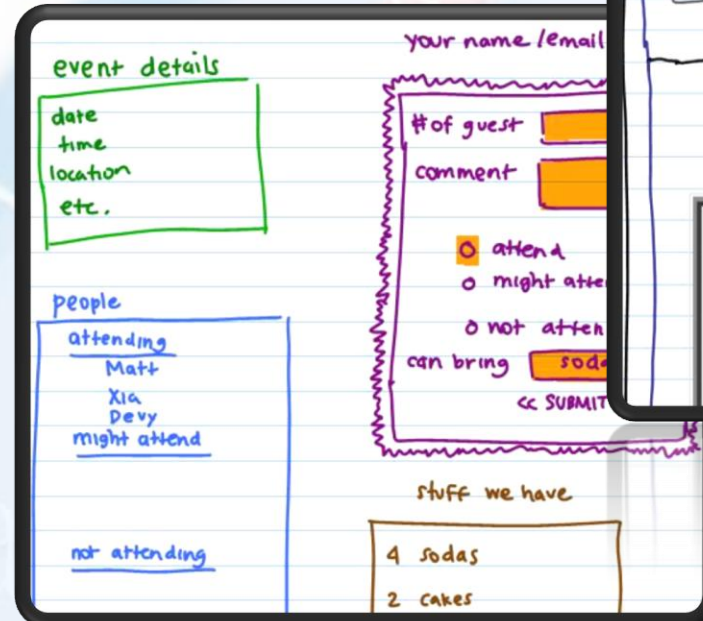 event details
date
time
location
etc.
people
attending
Matt
Xia
Devy
might attend
not attending
your name / email
# of guest
comment
attend
might atte
not atten
can bring soda
<< SUBMIT
stuff we have
4 sodas
2 cakes